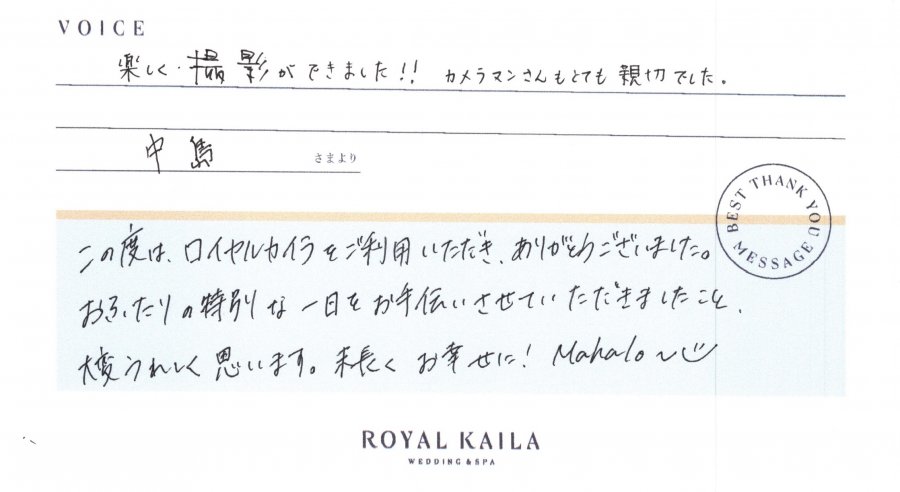 VOICE
楽しく撮影ができました!! カメラマンさんもとても親切でした。
中島 さまより
BEST THANK YOU MESSAGE
この度は、ロイヤルカイラをご利用いただき、ありがとうございました。
おふたりの特別な一日をお手伝いさせていただきましたこと、
大変うれしく思います。末長くお幸せに! Mahalo~
ROYAL KAILA
WEDDING & SPA